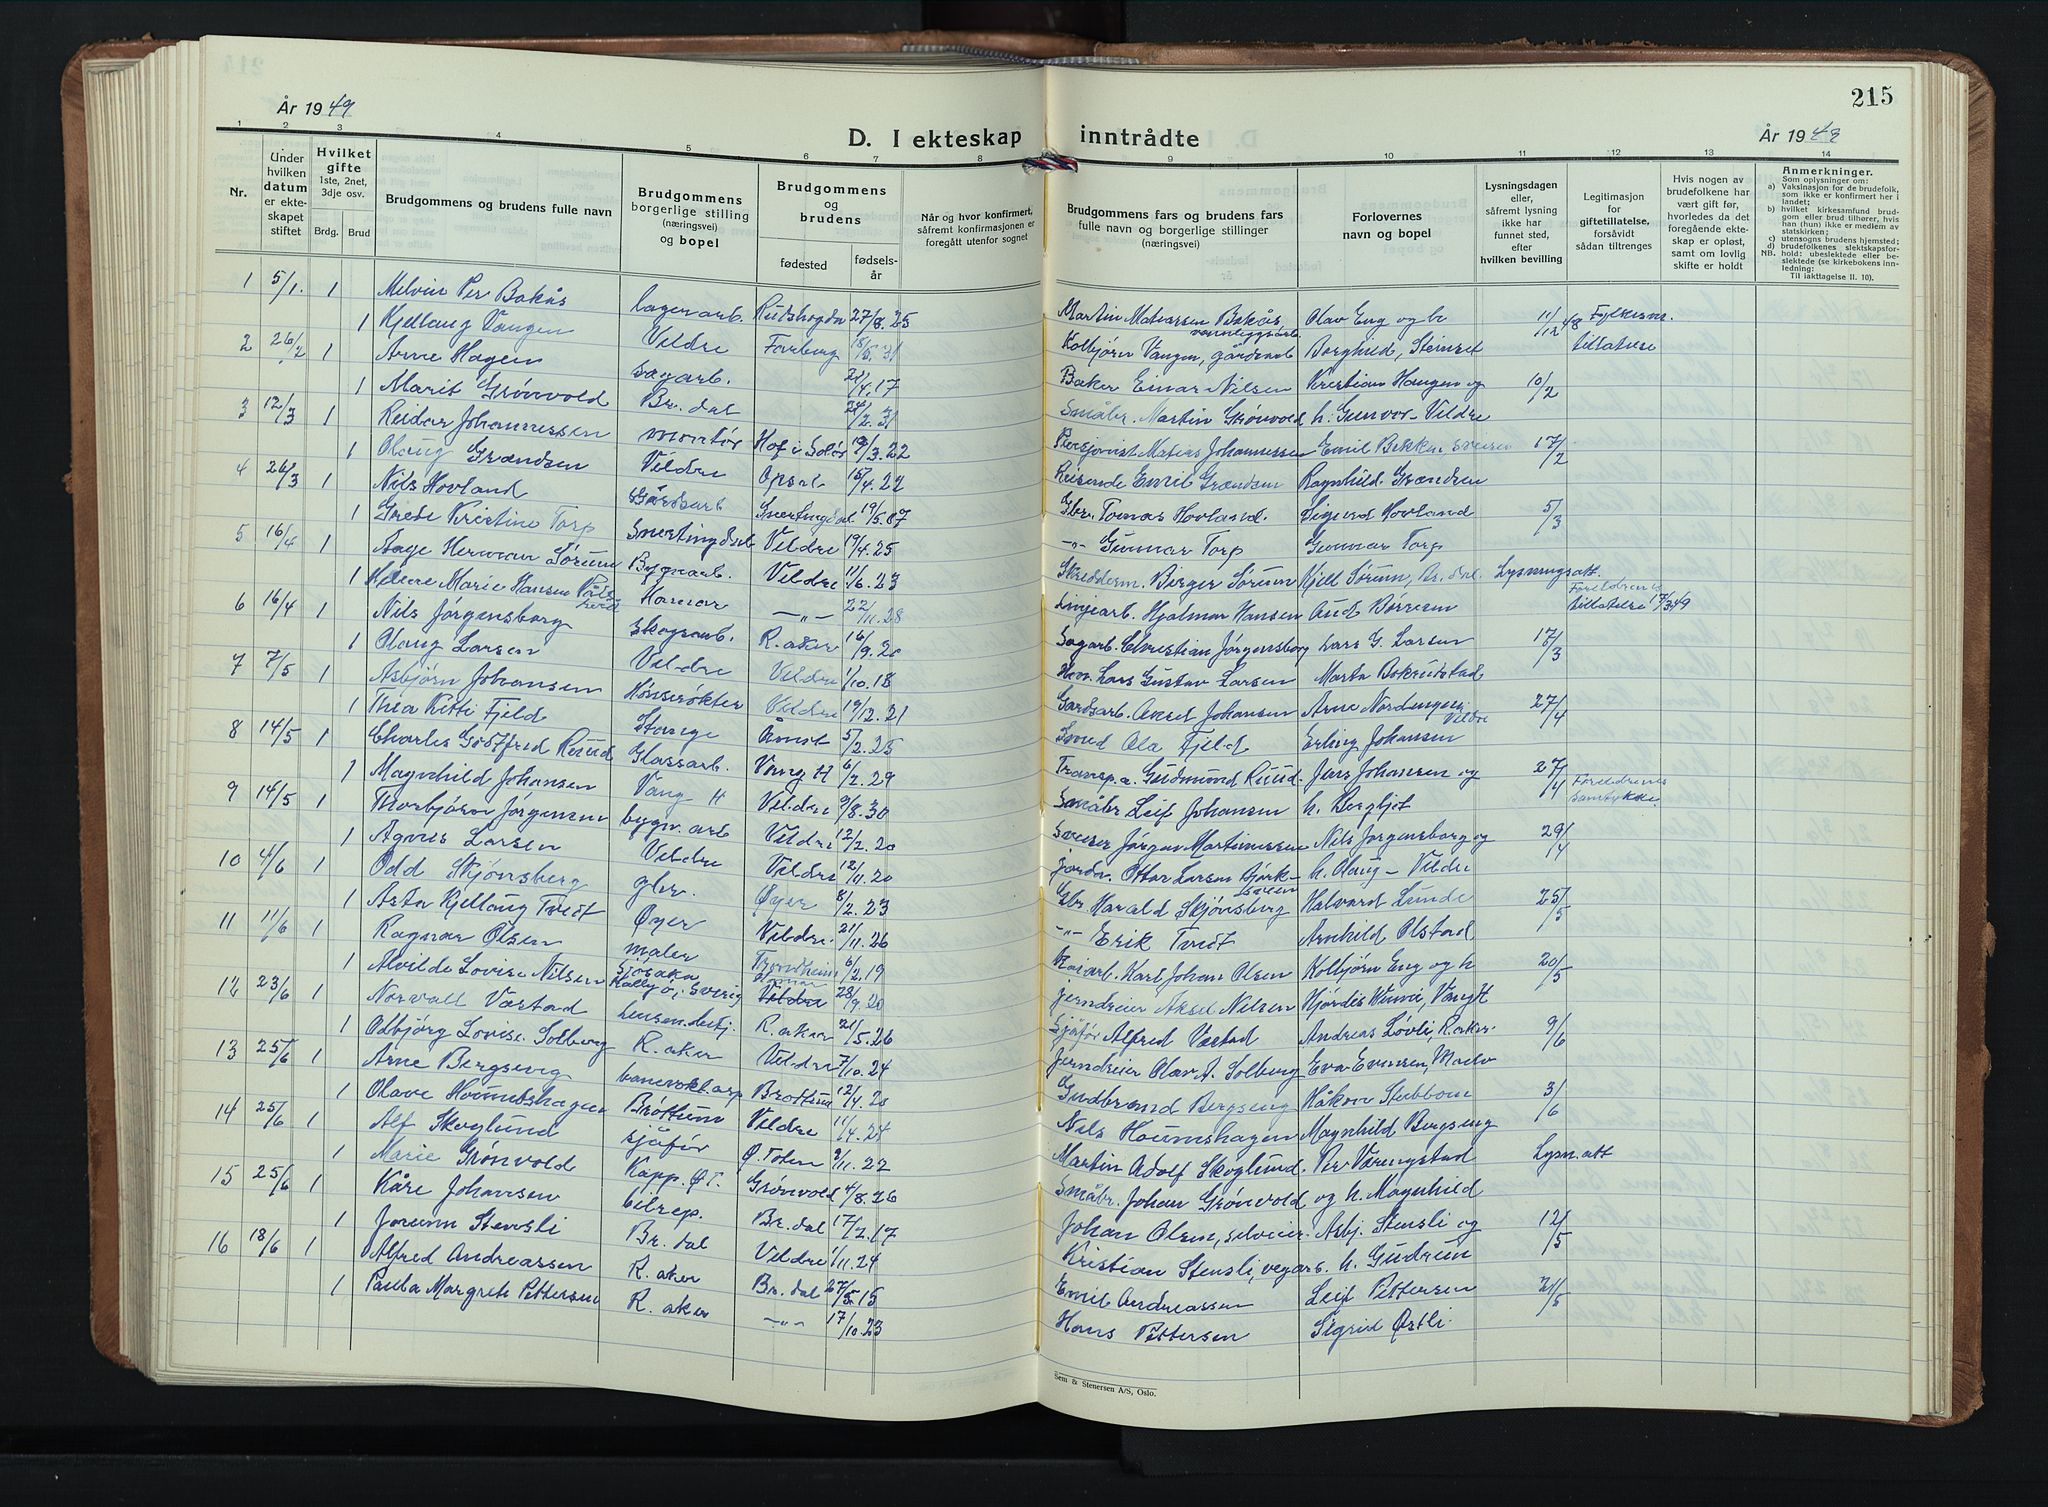 215
År 1949
D. I ekteskap inntrådte
År 1949
1 2 3 4 5 6 7 8 9 10 11 12 13 14
Nr.
Under hvilken datum er ekteskapet stiftet
Hvilket gifte 1ste, 2net, 3dje osv.
Brdg. Brud
Brudgommens og brudens fulle navn
Brudgommens borgerlige stilling (næringsvei) og bopel
Brudgommens og brudens
fødested
fødselsår
Når og hvor konfirmert, såfremt konfirmasjonen er foregått utenfor sognet
Brudgommens fars og brudens fars fulle navn og borgerlige stillinger (næringsvei)
Forlovernes navn og bopel
Lysningsdagen eller, såfremt lysning ikke har funnet sted, efter hvilken bevilling
Legitimasjon for giftetillatelse, forsåvidt sådan tiltrenges
Hvis nogen av brudefolkene har vært gift før, hvorledes da det foregående ekteskap er opløst, samt om lovlig skifte er holdt
Anmerkninger.
Som oplysninger om:
a) Vaksinasjon for de brudefolk, som ikke er konfirmert her i landet;
b) hvilket kirkesamfund brudgom eller brud tilhører, hvis han (hun) ikke er medlem av statskirken;
c) utensogns brudens hjemsted;
d) brudefolkenes slektskapsforhold: ubeslektede eller beslektede (se kirkebokens innledning:
NB. Til iakttagelse II. 10).
1 5/1. 1 Melvin Per Bakås lagerarb. Rudshøgda 27/8.25 Martin Matiassen Bakås Olav Eng og h 11/12 48 Fylkesm.
1 Kjellaug Vangen Veldre Faaberg Kolbjørn Vangen, gårdsarb Borghild, Steinset tillatelse
2 26/2 1 Arne Hagen sagarb. 21/4.17 Baker Einar Nilsen Kristian Haugen og 10/2
1 Marit Grønvold Br. dal 24/2.31 Småbr. Martin Grønvold h. Gunvor - Veldre
3 12/3 1 Reidar Johannessen montør Hof i Solør 19/3.22 Pensjonist Matias Johannessen Emil Bekken, 17/2
1 Olaug Grændsen Veldre Opsal 15/4.22 Reisende Emil Grændsen Ragnhild Grændsen
4 26/3 1 Nils Hovland Gårdsarb Snertingdal 19/5.07 Gbr. Tomas Hovland. Sigurd Hovland 5/3
1 Grete Kristine Torp Snertingdal Veldre 19/4.25 -"- Gunnar Torp Gunnar Torp
5 16/4 1 Aage Herman Sørum Bygnarb. Veldre 11/6.23 Skredderm. Birger Sørum Kjell Sørum, Br. dal. Lysningsatt.
1 Helene Marie Hansen Hamar -"- 22/11.28 Linjearb. Hjalmar Hansen Aud Børresen Foreldrenes tillatelse 17/3 49
6 16/4 1 Nils Jørgensborg Skogsarb. R. aker 16/9.20 Sagarb. Christian Jørgensborg Lars G. Larsen 17/3
1 Olaug Larsen Veldre Veldre 1/10.18 Lars Gustav Larsen Marta Bakrudstad
7 7/5 1 Asbjørn Johansen Hønserøkter Veldre 19/12.21 Gardsarb. Aksel Johansen Arne Nordengen Veldre 27/4
1 Thea Kitti Fjeld Stange Åmot 5/2.25 Smed Ola Fjeld Erling Johansen
8 14/5 1 Charles Godtfred Ruud Glassarb. Vang H 6/2.29 Transp.a. Gudmund Ruud. Jens Johansen og 27/4 Foreldrenes
1 Magnhild Johansen Vang H Veldre 9/8.30 Småbr Leif Johansen h. Bergljot samtykke
9 14/5 1 Thorbjørn Jørgensen bygn. arb Veldre 12/2.20 Sveiser Jørgen Martinussen Nils Jørgensborg og 29/4
1 Agnes Larsen Veldre Veldre 12/11.20 Ottar Larsen Bjørksveen h. Olaug - Veldre
10 4/6 1 Odd Skjønsberg gbr. Øyer 8/2.23 Gbr. Harald Skjønsberg Halvard Lunde 25/5
1 Asta Kjellaug Tvedt Øyer Veldre. 21/11.26 -"- Erik Tvedt Arnhild Olstad
11 11/6 1 Ragnar Olsen maler Trondheim 6/2.19 Karl Johan Olsen Kolbjørn Eng og h 20/5
1 Alvilde Lovise Nilsen Veldre 28/9.20 jerndreier Aksel Nilsen Hjørdis Vang H
12 23/6 1 Norvall Vastad R. aker 21/5.26 Sjåfør Alfred Vastad Andreas Løvli, R. aker. 9/6
1 Odbjørg Lovise Solberg R. aker Veldre 7/10.24 Jerndreier Olav A. Solberg Eva Evensen,
13 25/6 1 Arne Bergseng banevoktersp Brøttum 12/4.20 Gudbrand Bergseng Håkon Stubbom 3/6
1 Olave Houmbshagen Brøttum Veldre 11/4.24 Nils Houmshagen Magnhild Bergseng
14 25/6 1 Alf Skoglund sjåfør Ø. Toten 9/11.22 Martin Adolf Skoglund. Per Værengstad Lysn.att
1 Marie Grønvold Kapp. ØT. Grønvold 4/8.26 Småbr. Johan Grønvold og h. Magnhild
15 25/6 1 Kåre Johansen bilrep. Br. dal 17/2.17 Johan Olsen, Asbj. Stensli og 12/5
1 Jorunn Stensli Br. dal Veldre 1/11.24 Kristian Stensli, vegarb. h. Gudrun
16 18/6 1 Alfred Andreassen R. aker Br. dal 27/5.15 Emil Andreassen Leif Pettersen 21/5
1 Paula Margrete Pettersen R. aker -"- 17/10.23 Hans Pettersen Sigrid Østli.
Sem & Stenersen A/S, Oslo.